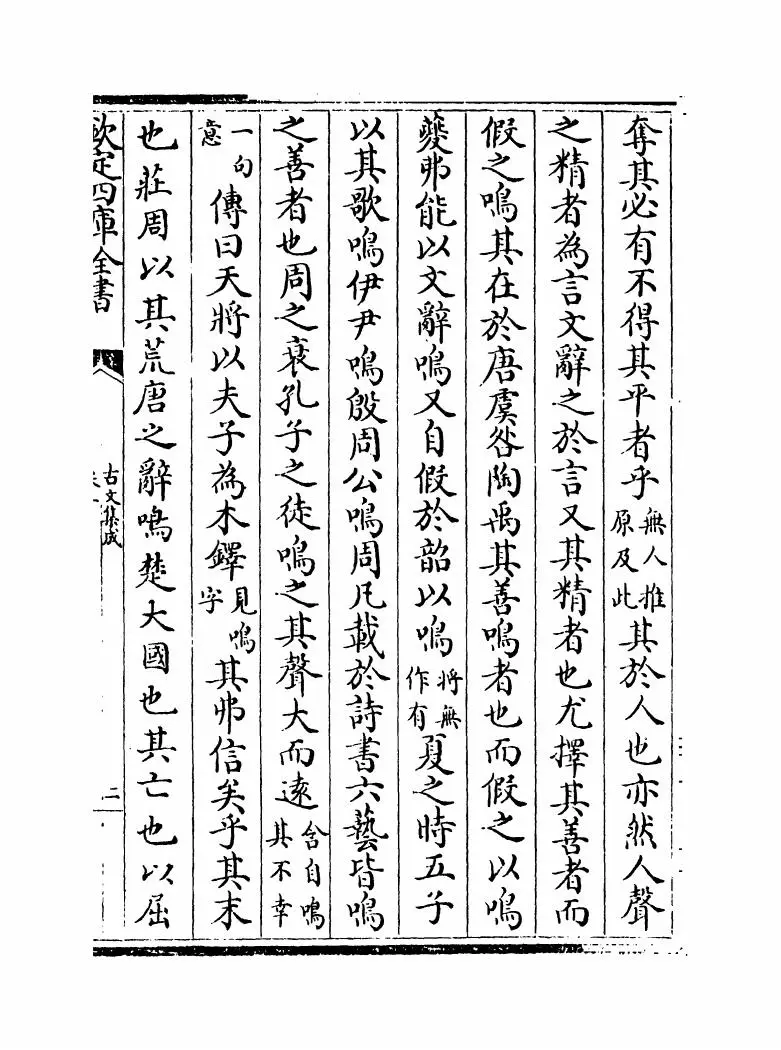 奪其必有不得其平者乎無人推原及此其於人也亦然人聲
之精者為言文辭之於言又其精者也尤擇其善者而
假之鳴其在於唐虞咎陶禹其善鳴者也而假之以鳴
夔弗能以文辭鳴又自假於韶以鳴將無作有夏之時五子
以其歌鳴伊尹鳴殷周公鳴周凡載於詩書六藝皆鳴
之善者也周之衰孔子之徒鳴之其聲大而遠含自鳴其不幸
一句意傳曰天將以夫子為木鐸見鳴字其弗信矣乎其末
也莊周以其荒唐之辭鳴楚大國也其亡也以屈
欽定四庫全書
古文集成
二